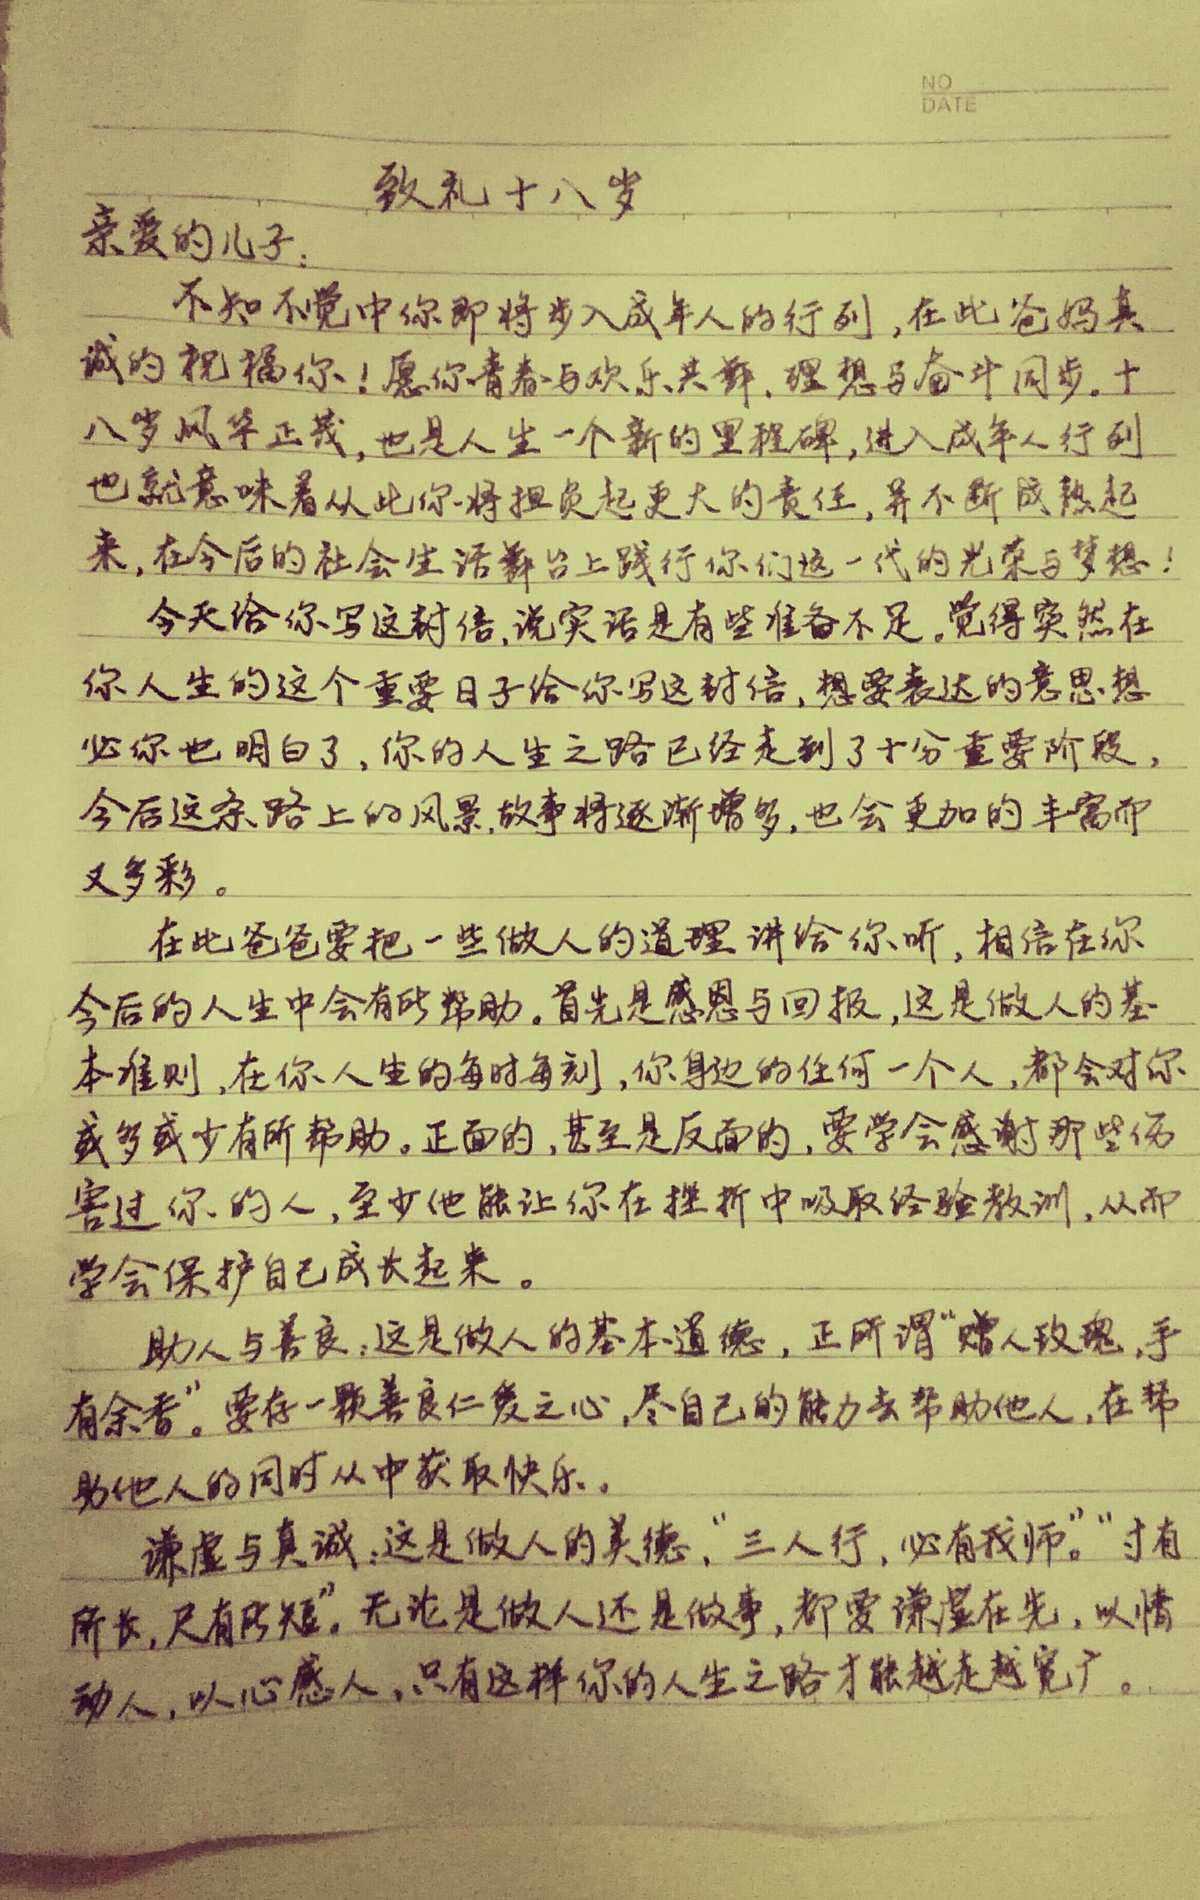 NO
DATE
致礼十八岁
亲爱的儿子:
不知不觉中你即将步入成年人的行列,在此爸妈真
诚的祝福你!愿你青春与欢乐共舞,理想与奋斗同步。十
八岁风华正茂,也是人生一个新的里程碑,进入成年人行列
也就意味着从此你将担负起更大的责任,并不断成熟起
来,在今后的社会生活舞台上践行你们这一代的光荣与梦想!
今天给你写这封信,说实话是有些准备不足。觉得突然在
你人生的这个重要日子给你写这封信,想要表达的意思想
必你也明白了,你的人生之路已经走到了十分重要阶段,
今后这条路上的风景,故事将逐渐增多,也会更加的丰富而
又多彩。
在此爸爸要把一些做人的道理讲给你听,相信在你
今后的人生中会有所帮助。首先是感恩与回报,这是做人的基
本准则,在你人生的每时每刻,你身边的任何一个人,都会对你
或多或少有所帮助。正面的,甚至是反面的,要学会感谢那些伤
害过你的人,至少他能让你在挫折中吸取经验教训,从而
学会保护自己成长起来。
助人与善良:这是做人的基本道德,正所谓“赠人玫瑰,手
有余香”。要存一颗善良仁爱之心,尽自己的能力去帮助他人,在帮
助他人的同时从中获取快乐。
谦虚与真诚:这是做人的美德,“三人行,必有我师”。“寸有
所长,尺有所短”。无论是做人还是做事,都要谦虚在先,以情
动人,以心感人,只有这样你的人生之路才能越走越宽广。